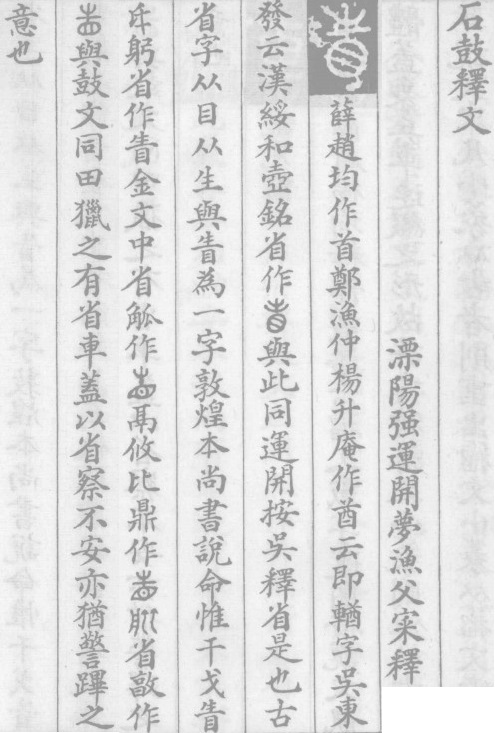 石鼓釋文
溧陽强運開夢漁父寀釋
薛趙均作首鄭漁仲楊升庵作酋云即輶字吳東
發云漢綏和壺銘省作𥃳與此同運開按吳釋省是也古
省字从目从生與眚為一字敦煌本尚書說命惟干戈眚
氒躬省作眚金文中省觚作 鬲攸比鼎作 省㪤作
與鼓文同田獵之有省車蓋以省察不安亦猶警蹕之
意也